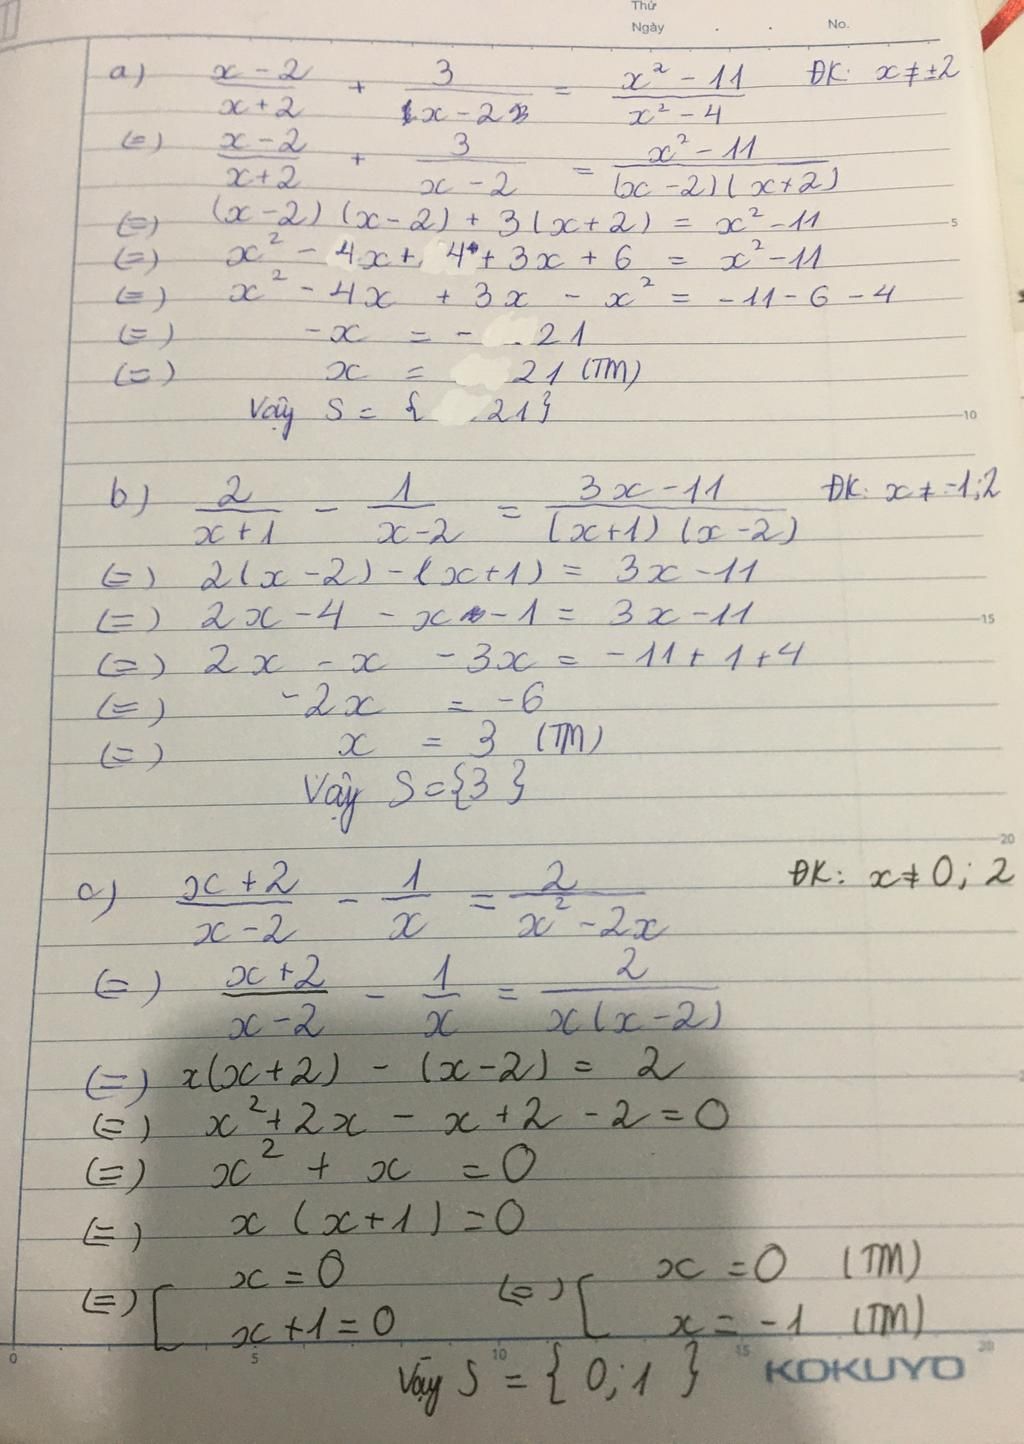 Thứ
Ngày . . No.
a) (x-2)/(x+2) + 3/(x-2) = (x²-11)/(x²-4) ĐK: x ≠ ±2
(=) (x-2)/(x+2) + 3/(x-2) = (x²-11)/((x-2)(x+2))
(=) (x-2)(x-2) + 3(x+2) = x²-11
5
(=) x² - 4x + 4 + 3x + 6 = x²-11
(=) x² - 4x + 3x - x² = -11-6-4
(=) -x = -21
(=) x = 21 (TM)
Vậy S = {21}
10
b) 2/(x+1) - 1/(x-2) = (3x-11)/((x+1)(x-2)) ĐK: x ≠ -1; 2
(=) 2(x-2) - (x+1) = 3x-11
(=) 2x-4 - x -1 = 3x-11
15
(=) 2x - x - 3x = -11+1+4
(=) -2x = -6
(=) x = 3 (TM)
Vậy S = {3}
20
c) (x+2)/(x-2) - 1/x = 2/(x²-2x) ĐK: x ≠ 0; 2
(=) (x+2)/(x-2) - 1/x = 2/(x(x-2))
(=) x(x+2) - (x-2) = 2
(=) x²+2x - x+2-2 = 0
(=) x² + x = 0
(=) x(x+1) = 0
(=) [ x = 0 (=) [ x = 0 (TM)
x+1 = 0 x = -1 (TM)
0 5 10 15 20
Vậy S = {0; 1} KOKUYO